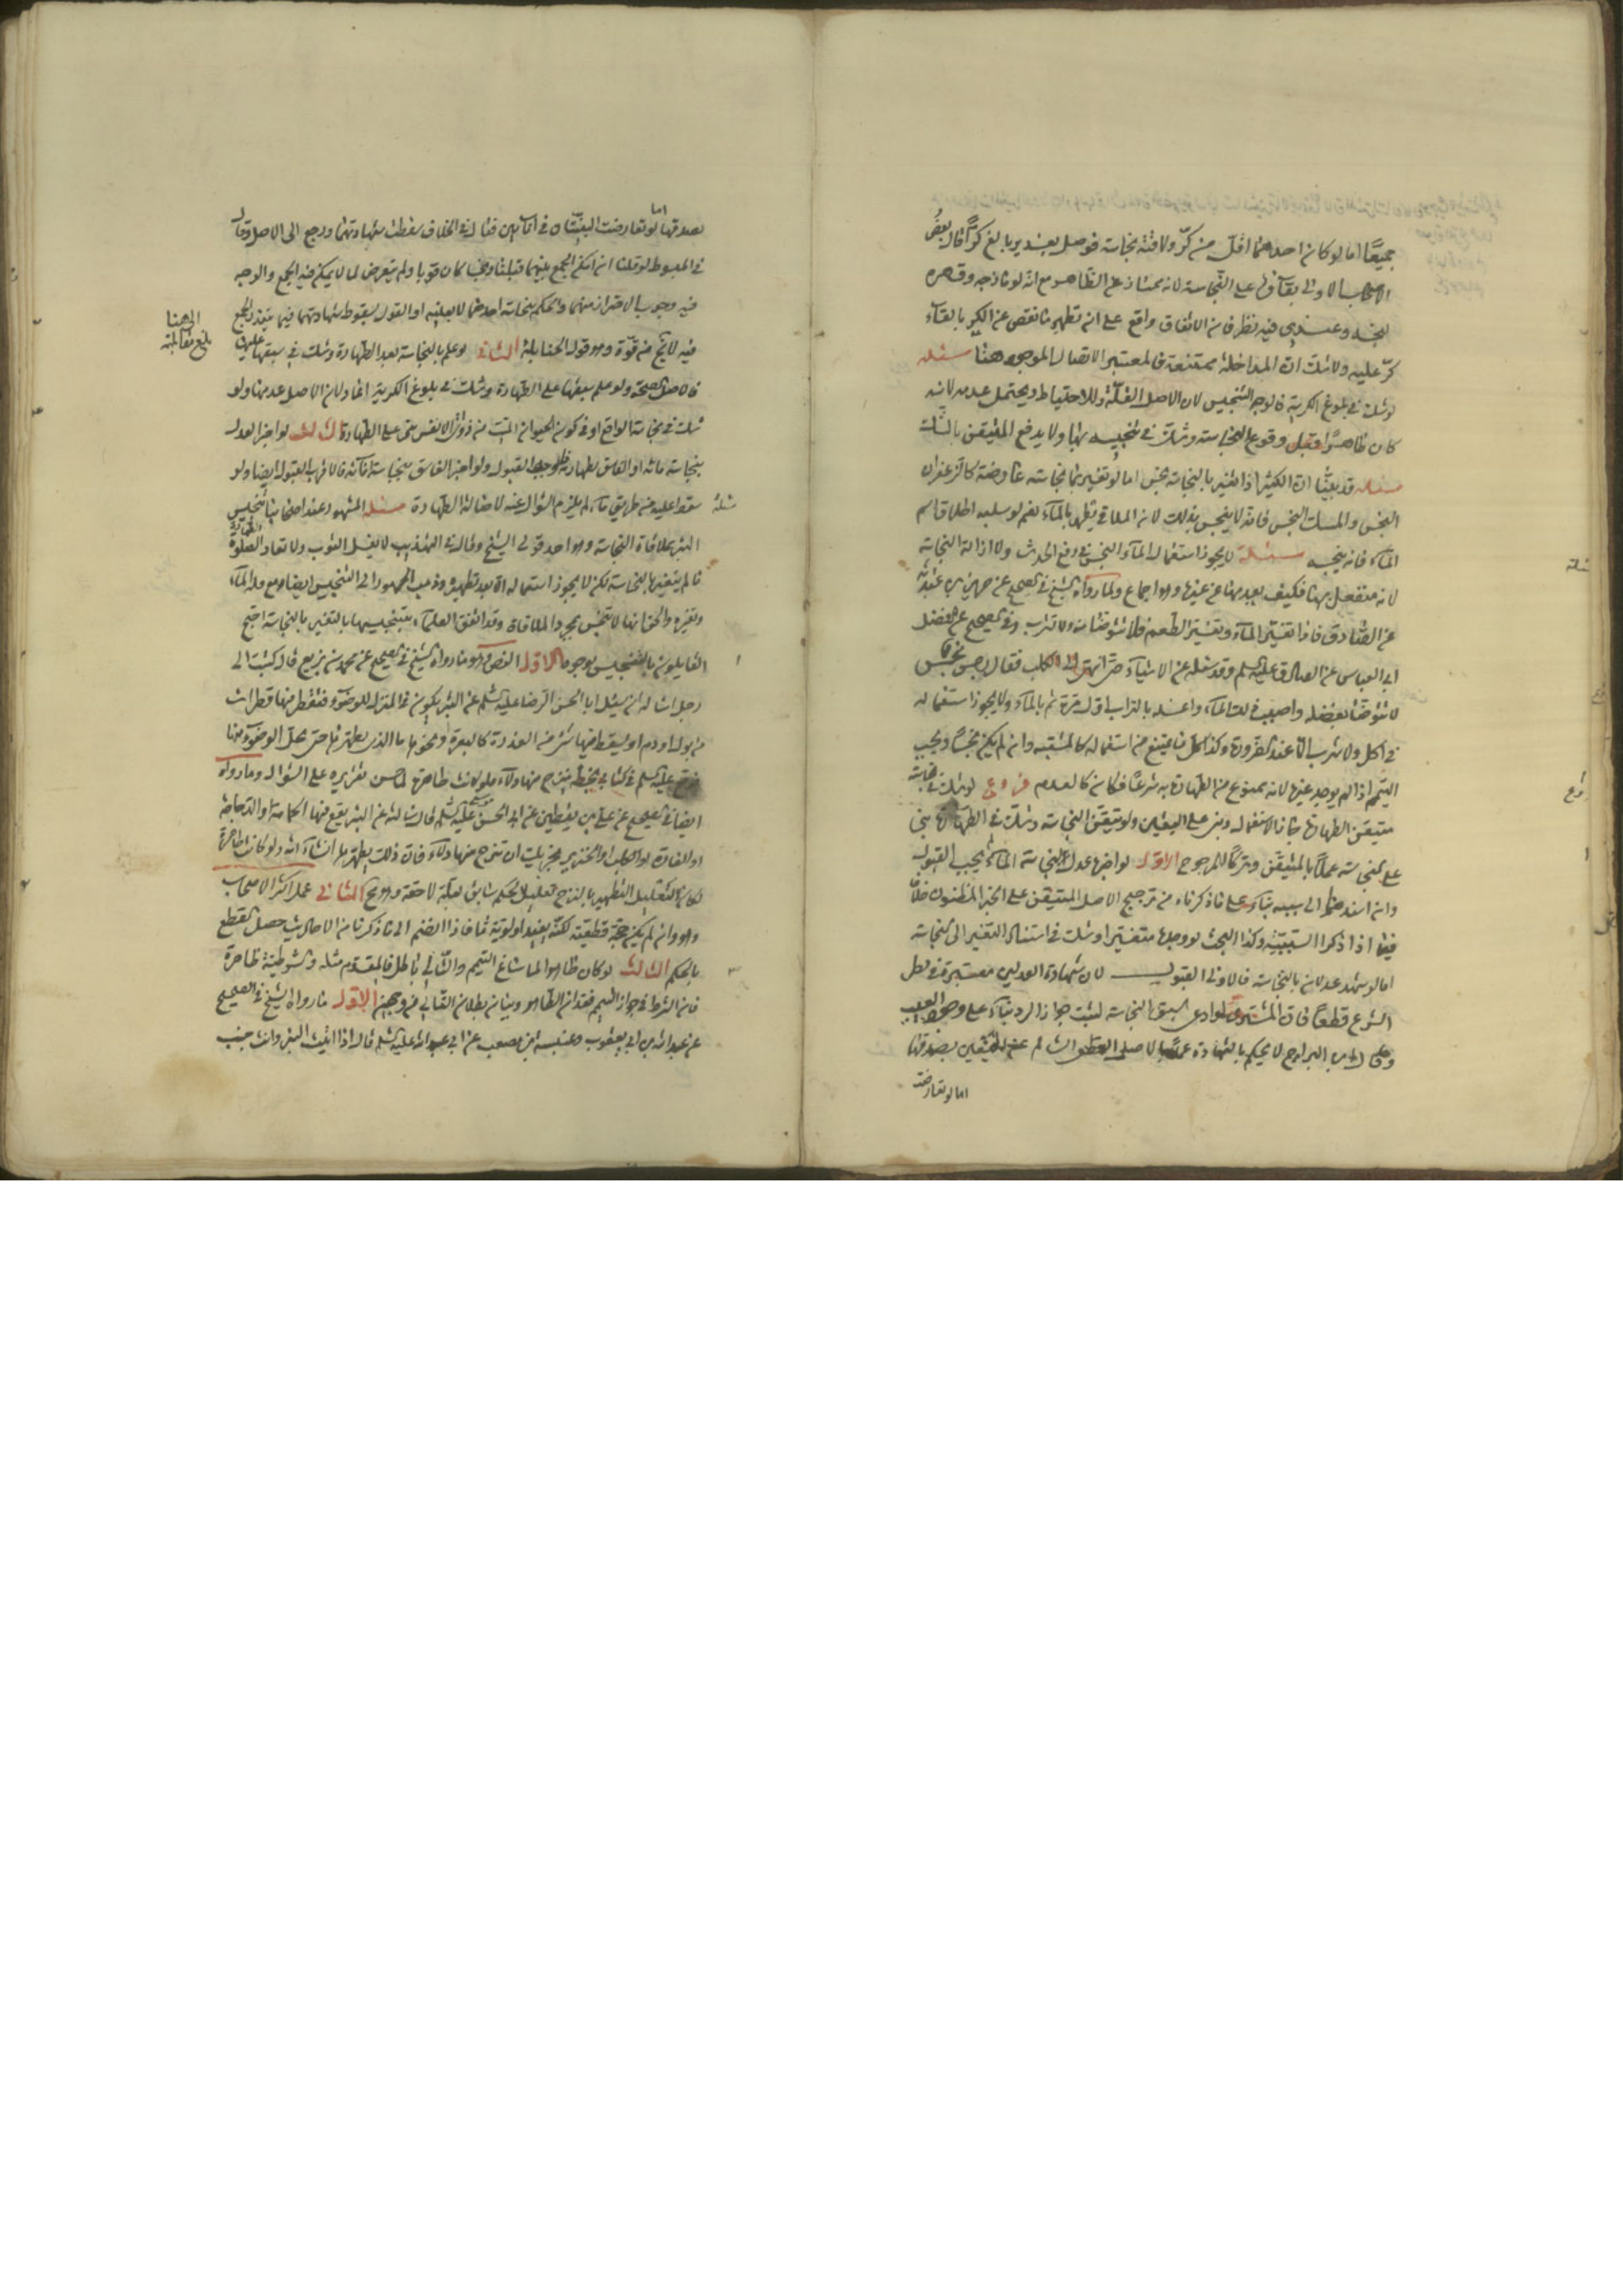 جميعًا اما لو كان احدهما اقل من كرّ ولاقته نجاسة فوصل بغدير بالغ كرًّا قال بعض
الاصحاب الاولى بقاؤه على النجاسة لانه ممتاز عن الطاهر مع انه لو مازجه وقهره
لنجسه وعندي فيه نظر فان الاتفاق واقع على ان تطهير ما نقص عن الكر بالقاء
كرّ عليه ولا شك ان المداخلة ممتنعة فالمعتبر الاتصال الموجود هنا مسئلة
لو شك في بلوغ الكرية فالوجه التنجيس لان الاصل القلة وللاحتياط ويحتمل عدمه لانه
كان طاهرًا قبل وقوع النجاسة وشك في تنجيسه بها ولا يدفع المتيقن بالشك
مسئلة قد بيّنّا ان الكثير اذا تغير بالنجاسة نجس اما لو تغير بما نجاسته عارضة كالزعفران
النجس والمسك النجس فانه لا ينجس بذلك لان الملاقي يطهر بالماء نعم لو سلبه اطلاق اسم
الماء فانه ينجسه مسئلة لا يجوز استعمال الماء النجس في رفع الحدث ولا ازالة النجاسة
لانه منفعل بها فكيف يعدمها عن غيرها وهو اجماع ولما رواه الشيخ في الصحيح عن حريز عن ابي عبد الله
عن الصادق فاذا تغيّر الماء وتغيّر الطعم فلا تتوضأ منه ولا تشرب وفي الصحيح عن الفضل
ابي العباس عن الصادق عليه السلم وقد سئله عن الاشياء حتى انتهى الى الكلب فقال رجس نجس
لا تتوضأ بفضله واصبب ذلك الماء واغسله بالتراب اول مرة ثم بالماء ولا يجوز استعماله
في اكل ولا شرب الا عند الضرورة وكذا كل ما يمتنع من استعماله كالمشتبه وان لم يكن نجسًا ويجب
التيمم اذا لم يوجد غيرها لانه ممنوع من الطهارة به شرعًا فكان كالمعدم فروع لو شك في نجاسة
متيقن الطهارة جاز الاستعمال وبنى على اليقين ولو تيقن النجاسة وشك في الطهارة بنى
على النجاسة عملًا بالمتيقن وتركًا للمرجوح الاول لو اخبر عدل بنجاسة الماء لم يجب القبول
وان اسند النجاسة الى سببه بناء على ما ذكرناه من ترجيح الاصل المتيقن على الخبر المظنون خلافًا
فيما اذا ذكر السببية وكذا البحث لو وجده متغيرا وشك في استناد التغير الى النجاسة
اما لو شهد عدلان بالنجاسة فالاولى القبول لان شهادة العدلين معتبرة في نظر
الشرع قطعًا فان المشتري لو ادعى سبق النجاسة لثبت جواز الرد بناء على وجود العيب
وقال ابن البراج لا يحكم بالشهادة عملًا بالاصل المقطوع السالم عن اليقين بصدقها
اما لو تعارضت
بصدقها اما لو تعارضت البينتان في انائين فقال في الخلاف سقطت شهادتهما ورجع الى الاصل وقال
في المبسوط لو قلنا ان امكن الجمع بينهما قبلتا ونجسا كان قويا ولم يتعرض لما لا يمكن فيه الجمع والوجه
فيه وجوب الاحتراز منهما والحكم بنجاسة احدهما لا بعينه او القول بسقوط شهادتهما فيما يتعذر الجمع
فيه لا يخ من قوة وهو قول الحنابلة الثاني لو علم بالنجاسة بعد الطهارة وشك في سبقها عليها
فالاصل الصحة ولو علم سبقها على الطهارة وشك في بلوغ الكرية اعاد لان الاصل عدمها ولو
شك في نجاسة الواقع او في كون الحيوان الميت من ذوات الانفس بنى على الطهارة الثالث لو اخبر العدل
بنجاسة مائه او الفاسق بطهارته فالوجه القبول ولو اخبر الفاسق بنجاسة انائه فالاقرب القبول ايضا ولو
سقط عليه من طريق ماء لم يلزم السؤال عنه لاصالة الطهارة مسئلة المشهور عند اصحابنا تنجيس
البئر بملاقاة النجاسة وهو احد قولي الشيخ وقال في التهذيب لا يغسل الثوب ولا تعاد الصلوة
ما لم يتغير بالنجاسة لكن لا يجوز استعماله الا بعد تطهيره وذهب الجمهور الى التنجيس ايضا مع قلة الماء
وتغيره والحق انها لا تنجس بمجرد الملاقاة وقد اتفق العلماء بتنجيسها بالتغير بالنجاسة احتج
القايلون بالتنجيس بوجوه الاول النص وهو ما رواه الشيخ في الصحيح عن محمد بن بزيع قال كتبت الى
رجل اسئله ان يسئل ابا الحسن الرضا عليه السلم عن البئر يكون في المنزل للوضوء فتقطر فيها قطرات
من بول او دم او يسقط فيها شئ من العذرة كالبعرة ونحوها ما الذي يطهرها حتى يحل الوضوء منها
فوقع عليه السلم في كتابي بخطه ينزح منها دلاء ولو كانت طاهرة لما حسن تقريره على السؤال وما رواه
ايضا في الصحيح عن علي بن يقطين عن ابي الحسن موسى عليه السلم قال سألته عن البئر يقع فيها الحمامة او الدجاجة
او الفارة او الكلب او الخنزير يجزيك ان تنزح منها دلاء فان ذلك يطهرها انشاء الله ولو كانت طاهرة
لكان التعليل التطهير بالنزح تعليل لحكم سابق بعلة لاحقة وهو مح الثاني عمل اكثر الاصحاب
وهو وان لم يكن حجة قطعية لكنه يفيد اولوية ما فاذا انضم الى ما ذكرنا من الاحاديث حصل القطع
بالحكم الثالث لو كان طاهرا لما ساغ التيمم والتالي باطل فالمقدم مثله والشرطية ظاهرة
فان الشرط في جواز التيمم فقدان الطاهر وبيان بطلان التالي من وجهين الاول ما رواه الشيخ في الصحيح
عن عبد الله بن ابي يعفور وعنبسة بن مصعب عن ابي عبد الله عليه السلم قال اذا اتيت البئر وانت جنب
الى هنا
بلغ مقابلته